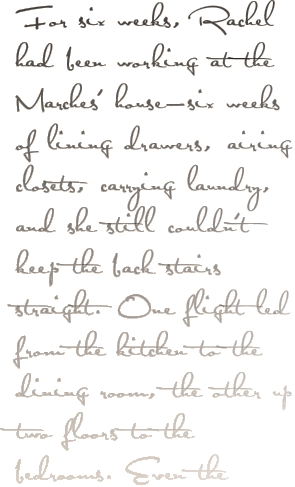 For six weeks, Rachel
had been working at the
Marches' house—six weeks
of lining drawers, airing
closets, carrying laundry,
and she still couldn't
keep the back stairs
straight. One flight led
from the kitchen to the
dining room, the other up
two floors to the
bedrooms. Even the